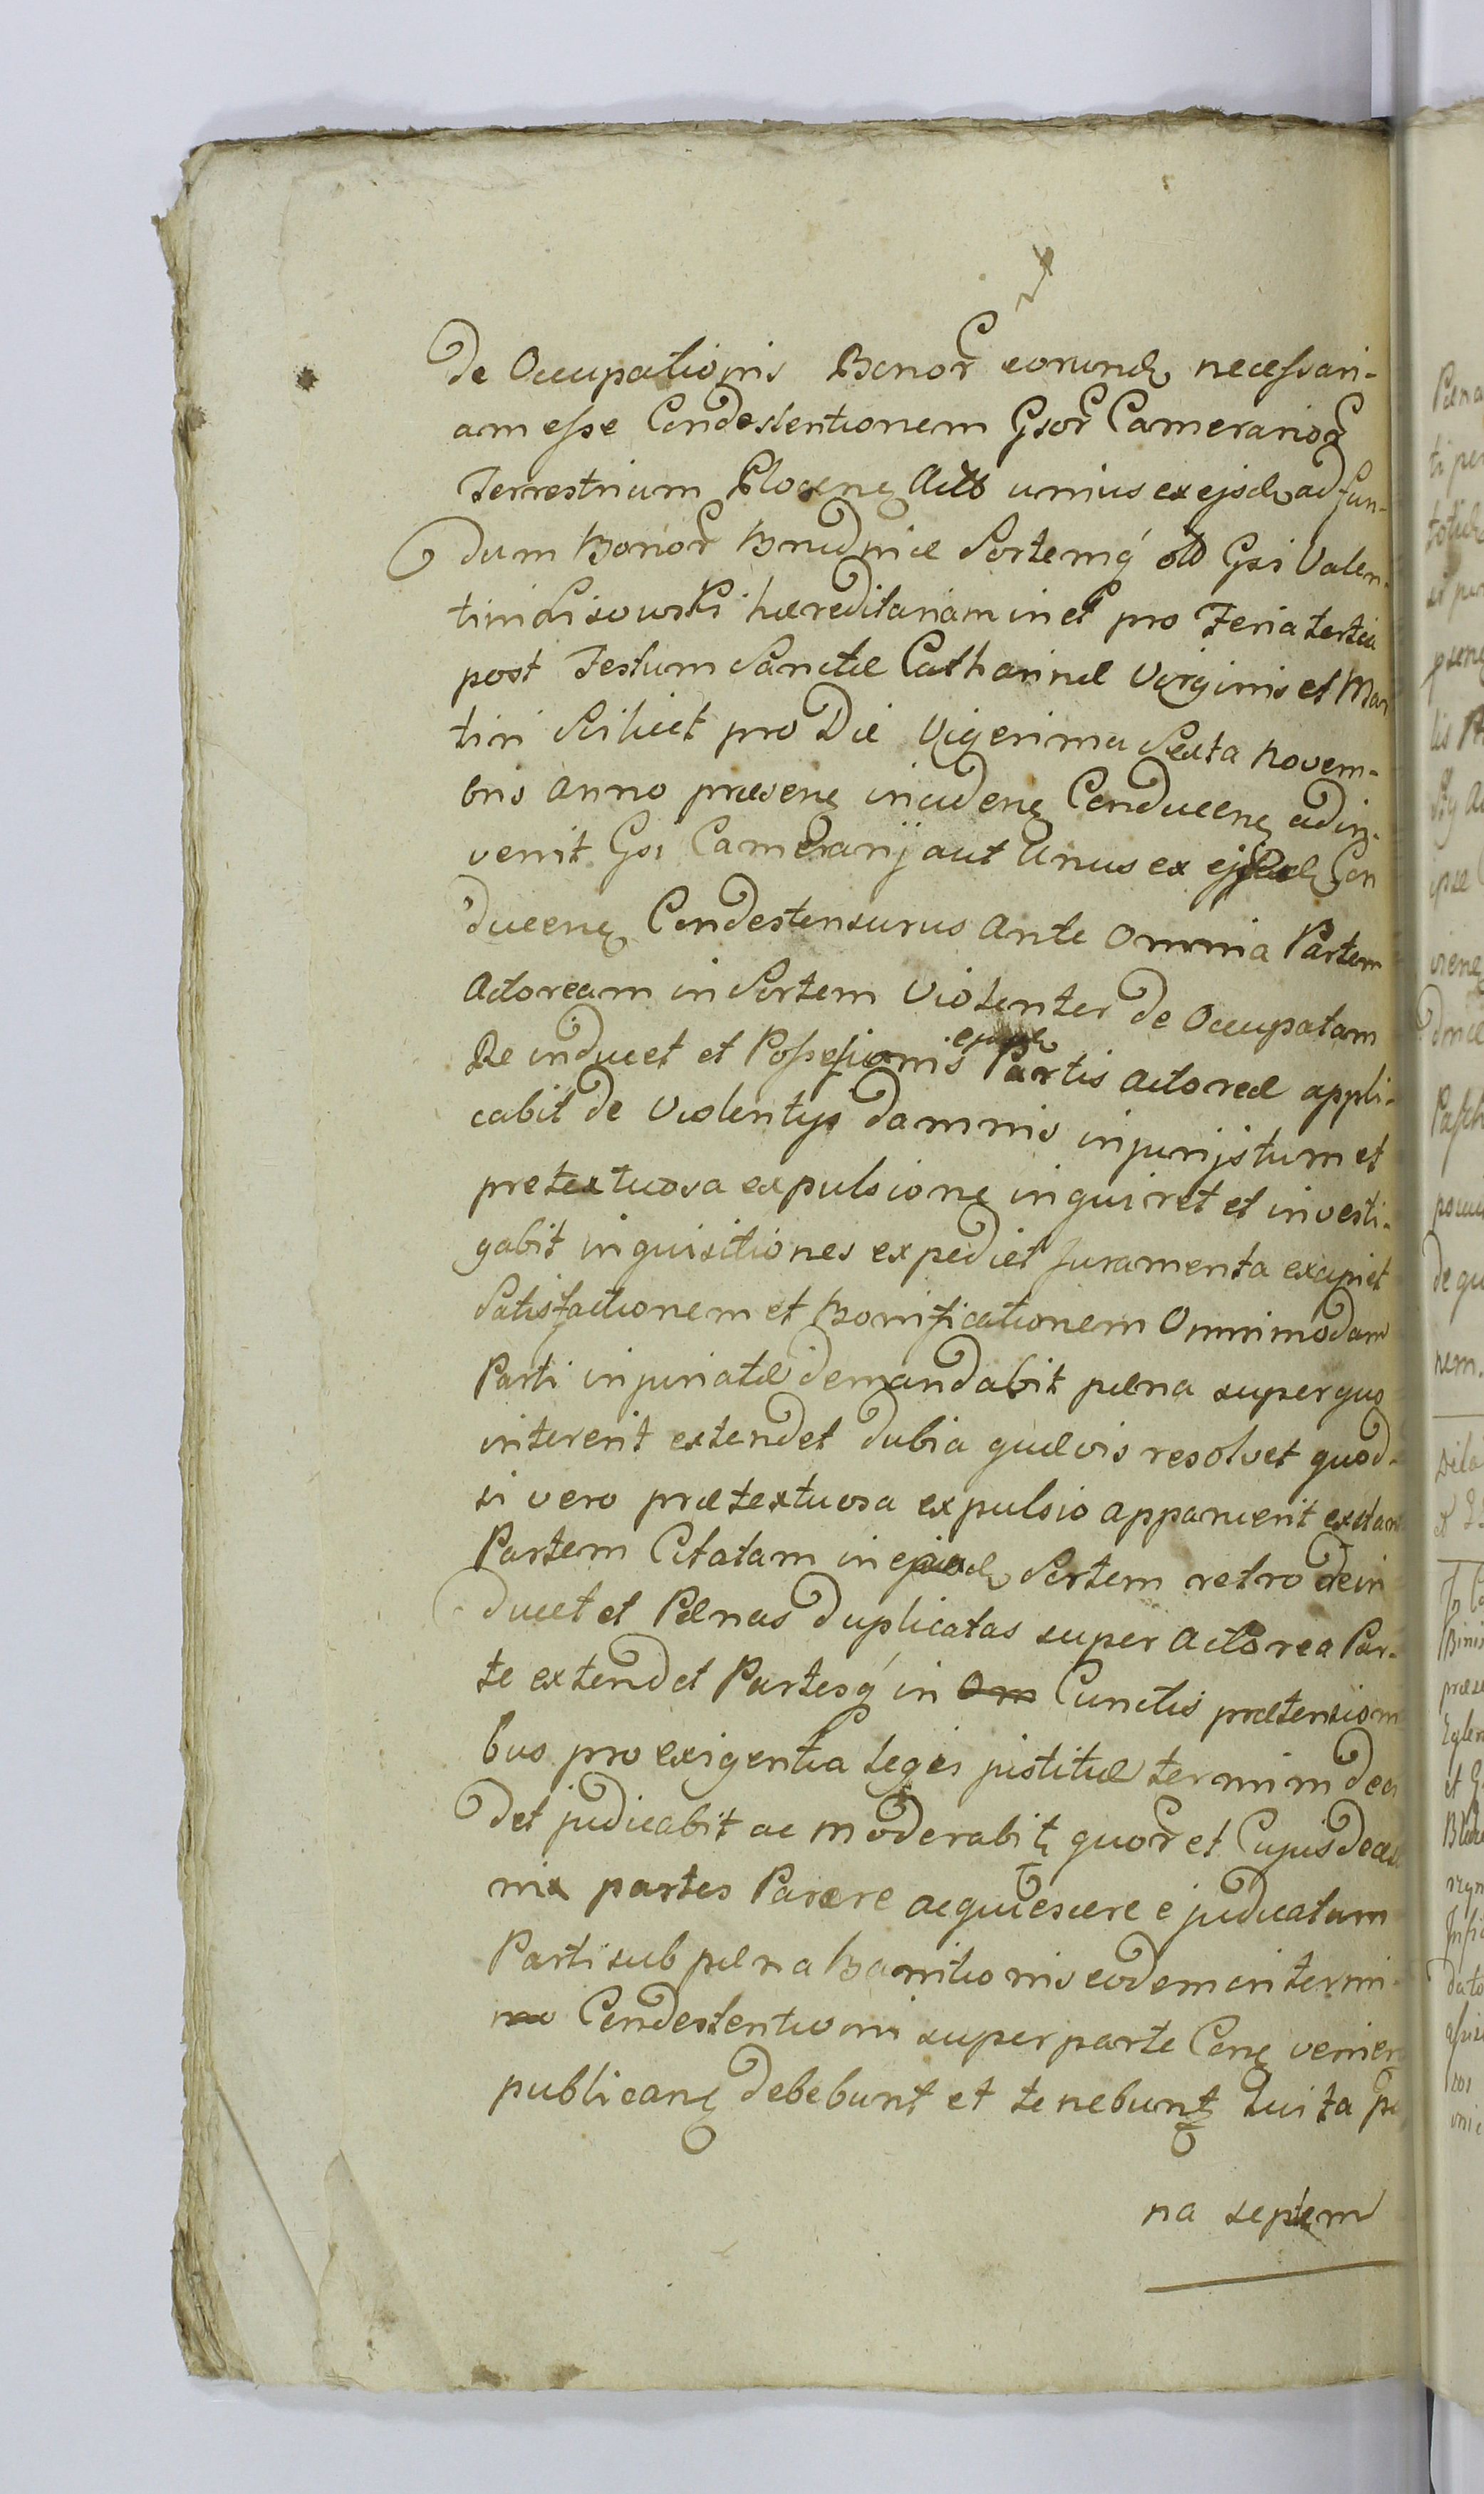 de Occupationis Bonor eorund necessari-
am esse Condestentionem Gsor Camerarior
Terrestrium Plocen Aut unius ex ejsd ad fun-
dum Bonor Brudnice Sortemq olb Gsi Valen-
tini Lisowski hæreditariam in et pro Feria tertia
post Festum Sanctæ Catharinæ Virginis et Mar
tiri Scilicet pro Die Vigerima Sexta Novem-
bris anno præsen inciden Conducen adin-
venit Gsi Camerarij aut Unus ex ejsd Con
ducen Condestensurus Ante Omnia Partem
Actoream in Sortem Violenter de Occupatam
Re inducet et Possessionis Partis Actoreæ appli-
cabit de Violentijs damnis injurijs tum et
pretextuosa expulsione inquiret et investi-
gabit inquisitiones expediet Juramenta excipiet
Satisfactionem et Bonificationem Omnimodam
Parti injuriatæ demandabit pæna super quo
intererit extendet dubia quævis resolvet quod-
si vero prætextuosa expulsio apparuerit extant
Partem Citatam in Sortem retro dein
ducet et Pænas duplicatas super Actorea Par-
te extendet Partesq in Om Cunctis prætensioni
bus pro exigentia legis justitiæ termini deci
det judicabit ac moderabit quor et Cujus
nix partes Parere acquiescere e judicatum
Parti sub pæna Banitionis eodem in termi-
no Condestentioni super parte Con venien
publican debebunt et tenebunt Luita pæ
na septem